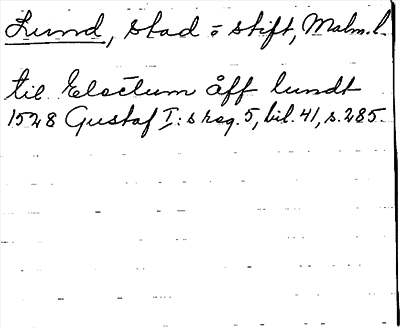 Lund, stad o stift, Malm. l.
til Electum åff lundt
1528 Gustaf I:s reg. 5, bil. 41, s. 285.